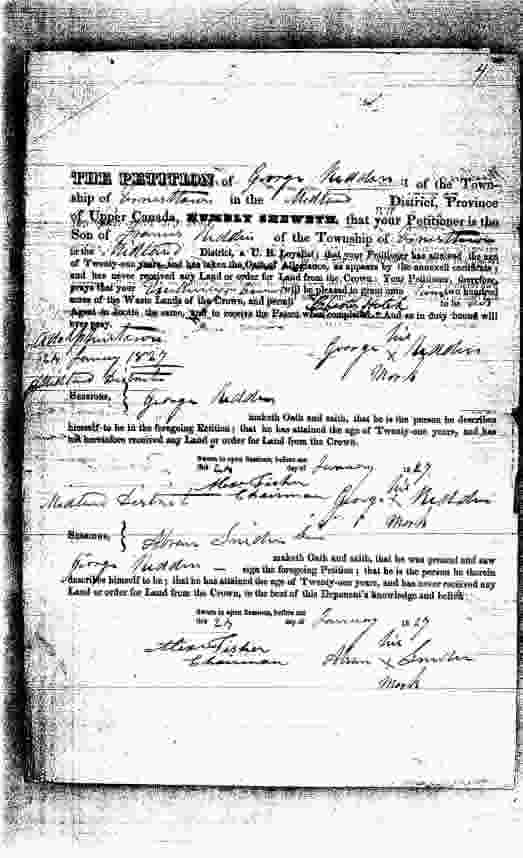 4
THE PETITION of George Redden of the Town-
ship of Ernesttown in the Midland District, Province
of Upper Canada, HUMBLY SHEWETH, that your Petitioner is the
Son of Redden of the Township of Ernesttown
in the Midland District, a U. E. Loyalist; that your Petitioner has attained the age
of Twenty-one years, and has taken the Oath of Allegiance, as appears by the annexed certificate;
and has never received any Land or order for Land from the Crown. Your Petitioner, therefore,
prays that your will be pleased to grant him two hundred
acres of the Waste Lands of the Crown, and permit to be his
Agent to locate the same, and to receive the Patent when completed. And as in duty bound will
ever pray.
Adolphustown
24 January 1827
Midland District
George his x Redden
Mark
Sessions, } George Redden
maketh Oath and saith, that he is the person he describes
himself to be in the foregoing Petition; that he has attained the age of Twenty-one years, and has
not heretofore received any Land or order for Land from the Crown.
Sworn in open Sessions, before me
this 24 day of January 1827
Alexr Fisher
Chairman
George his x Redden
Mark
Midland District
Sessions, } Abram Snider
George Redden maketh Oath and saith, that he was present and saw
sign the foregoing Petition; that he is the person he therein
describes himself to be; that he has attained the age of Twenty-one years, and has never received any
Land or order for Land from the Crown, to the best of this Deponent's knowledge and belief.
Sworn in open Sessions, before me
this 24 day of January 1827
Alexr Fisher
Chairman
Abram his x Snider
Mark